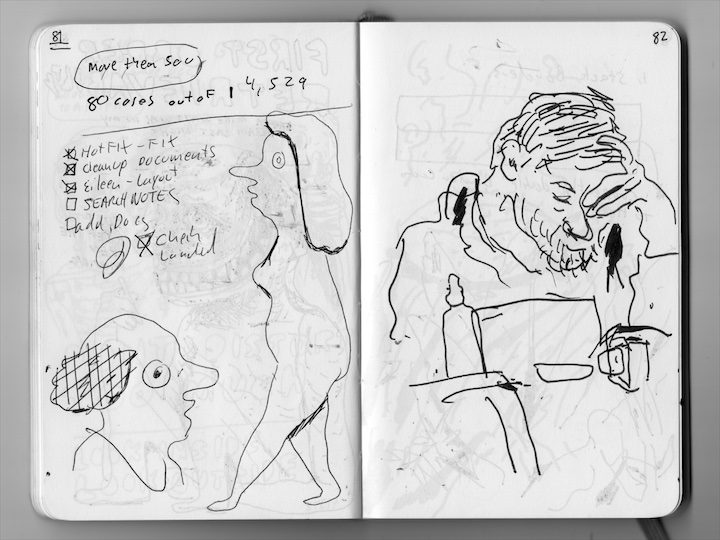 81
move them
80 cases out of 14,529
HotFit - Fit
Cleanup Documents
Eileen - Layout
SEARCH NOTES
Dadd, Docs
Check
82